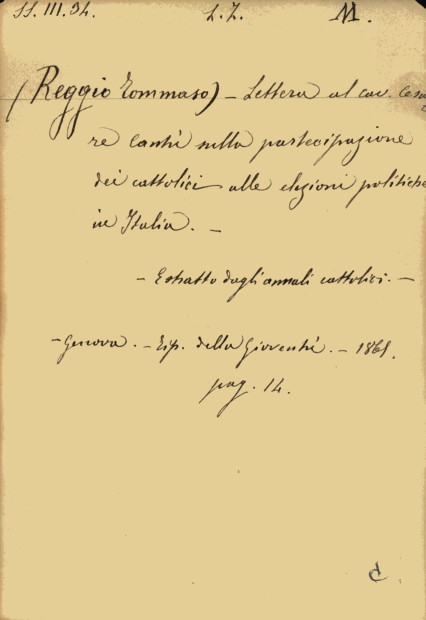 SS. III. 94. L. Z. M.
(Reggio Tommaso) – Lettera al cav. Cesa
re Cantù sulla partecipazione
dei cattolici alle elezioni politiche
in Italia. –
– Estratto dagli annali cattolici. –
– Genova. – Tip. della Gioventù. – 1865.
pag. 14.
C